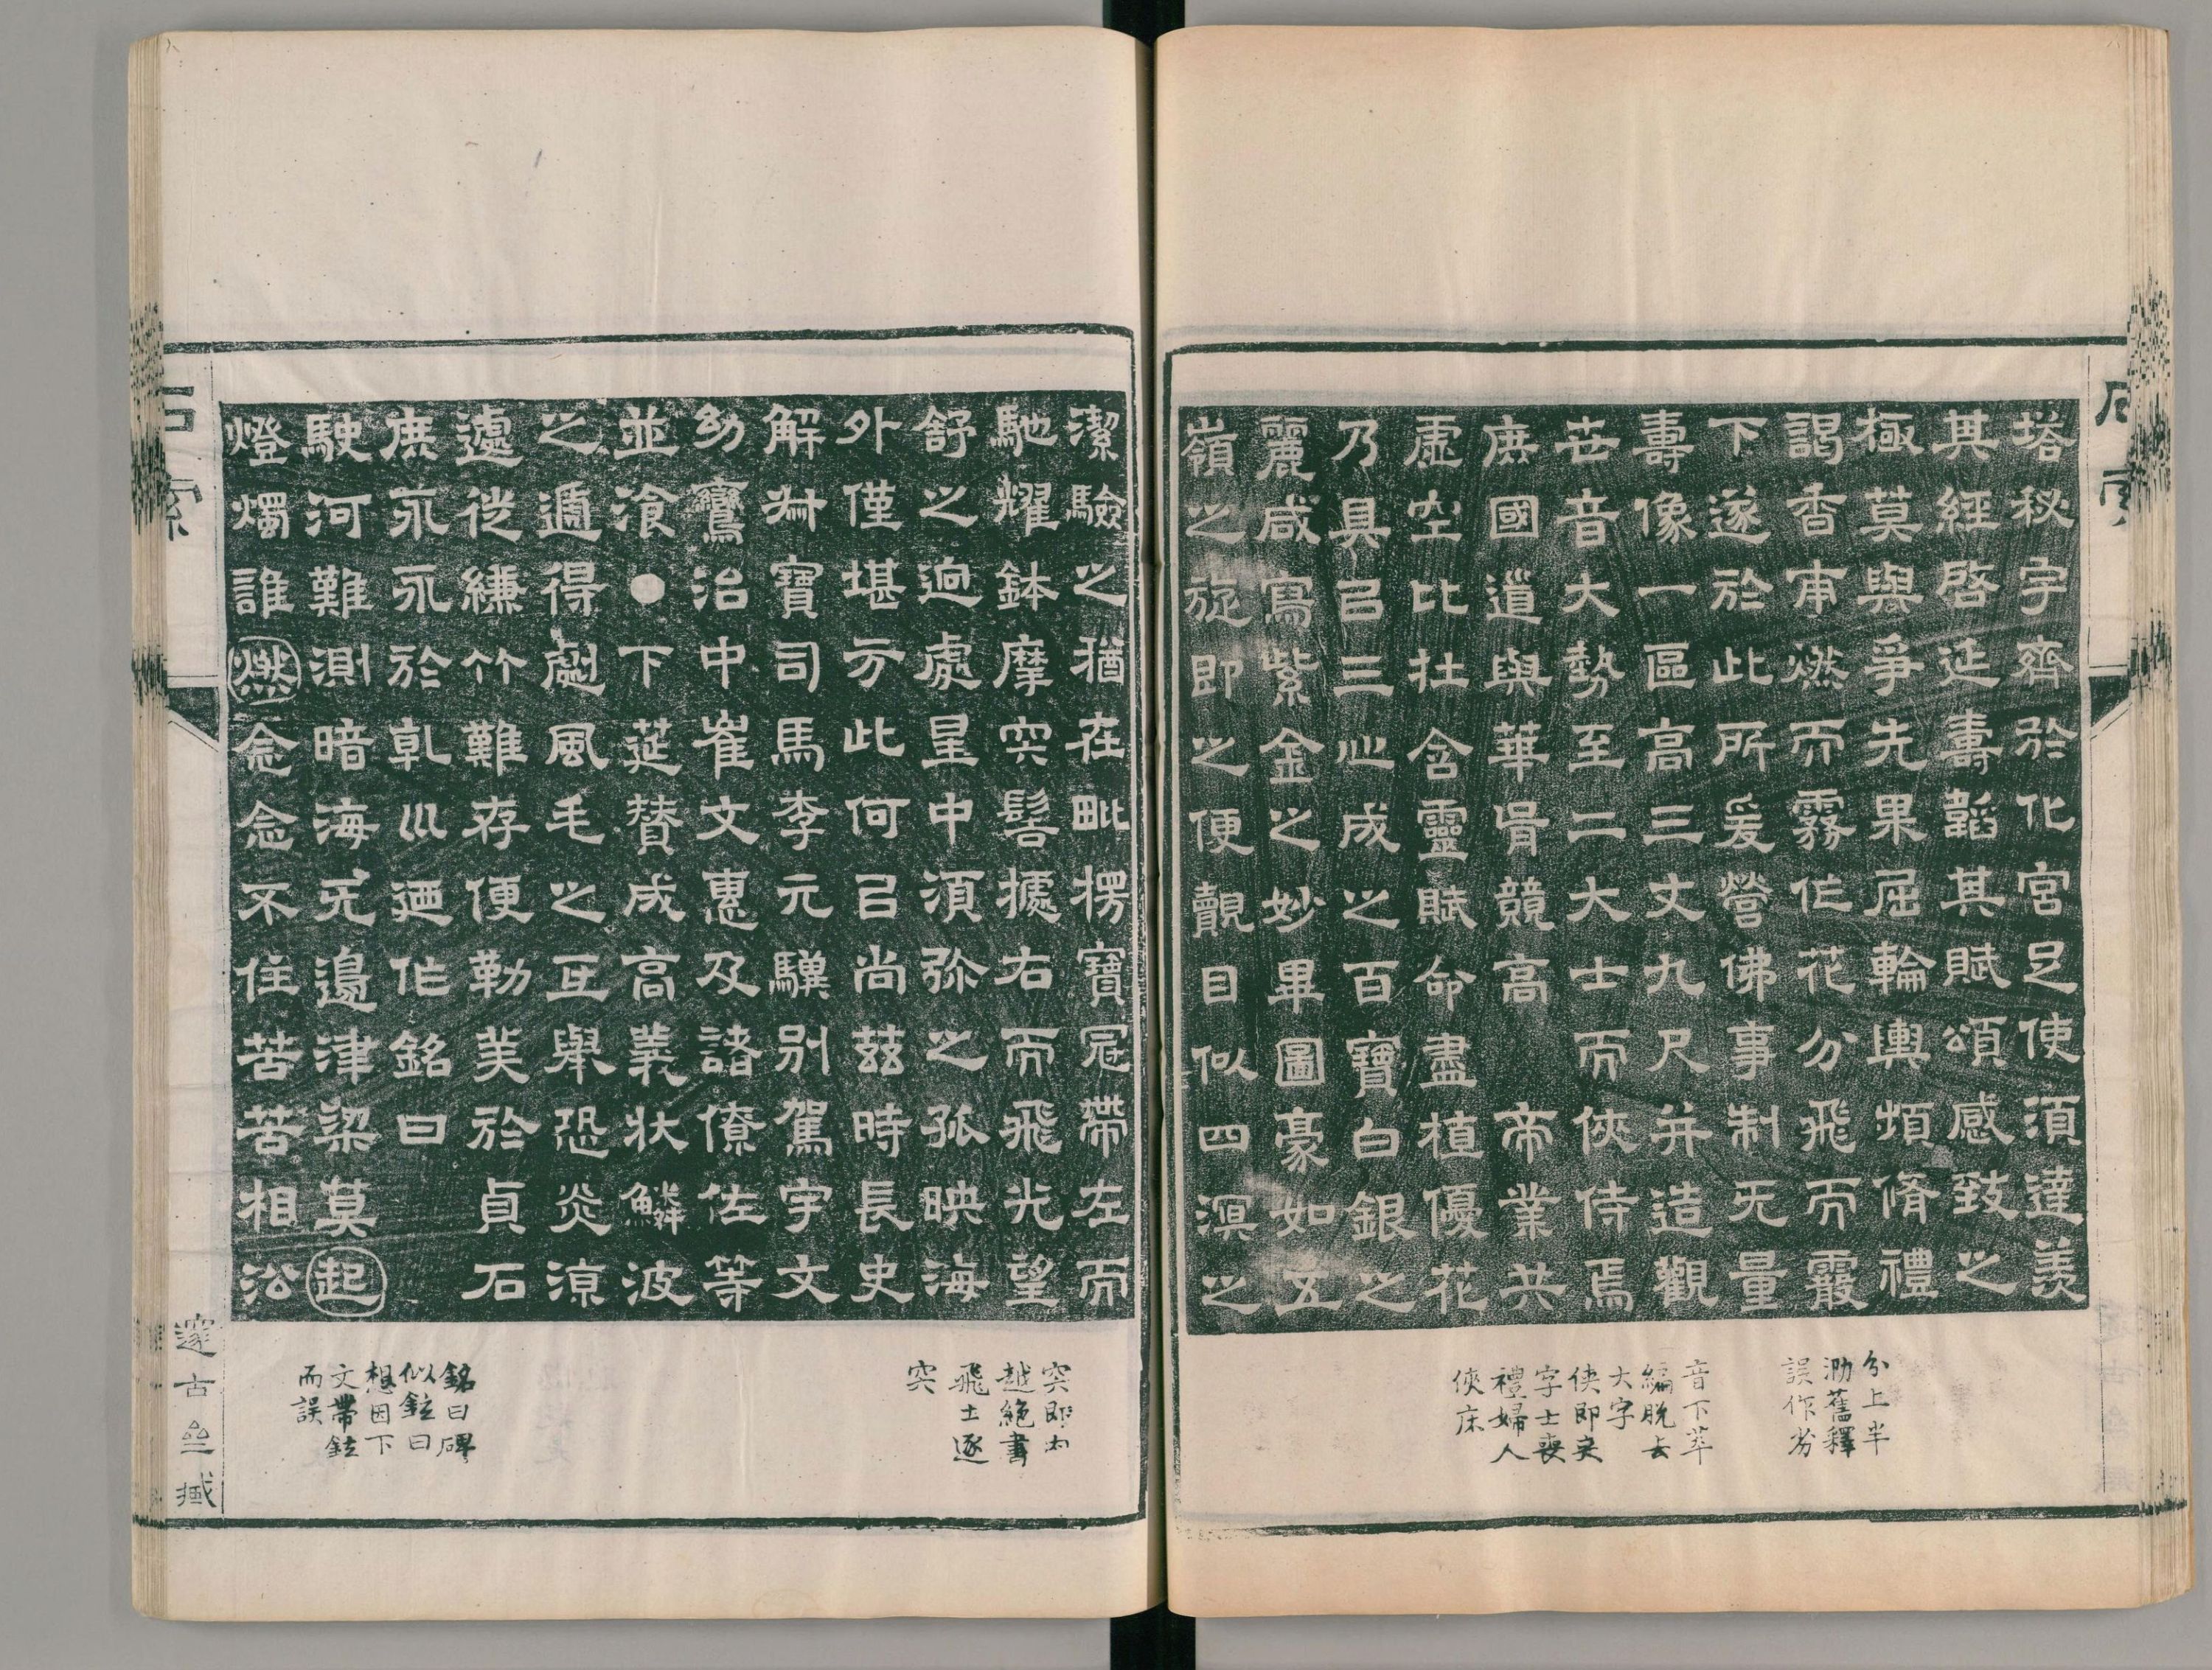 石索
塔秘字齊於化宮足使須達羨
其經啓延壽韜其賦頌感致之
極莫與爭先果屈輪輿頫脩禮
謁香甫燃而霧作花分飛而霰
下遂於此所爰營佛事制无量
壽像一區高三丈九尺并造觀
世音大勢至二大士而俠侍焉
庶國道與華胥競高 帝業共
虛空比壮含靈賦命盡植優花
乃具已三心成之百寶白銀之
麗咸寫紫金之妙畢圖豪如五
嶺之旋即之便覿目似四溟之
分上半
泐舊釋
誤作芬
音下萃
編脫去
大字
俠即夾
字士喪
禮婦人
俠床
潔驗之猶在毗楞寶冠帶左而
馳耀鉢摩突髻據右而飛光望
舒之逈處星中須弥之孤映海
外僅堪方此何已尚茲時長史
解寶司馬李元驥別駕宇文
幼鸞治中崔文惠及諸僚佐等
並飡●下莚賛成高義狀鱗波
之遞得風毛之互舉恐炎涼
遽從縑竹難存便勒美於貞石
庶永永於乹巛廼作銘曰
駛河難測暗海无邊津梁莫起
燈燭誰燃念念不住苦苦相沿
突即肉
越絕書
飛土逐
突
銘曰碑
似鉉曰
想因下
文帶鉉
而誤
石索
邃古亝臧